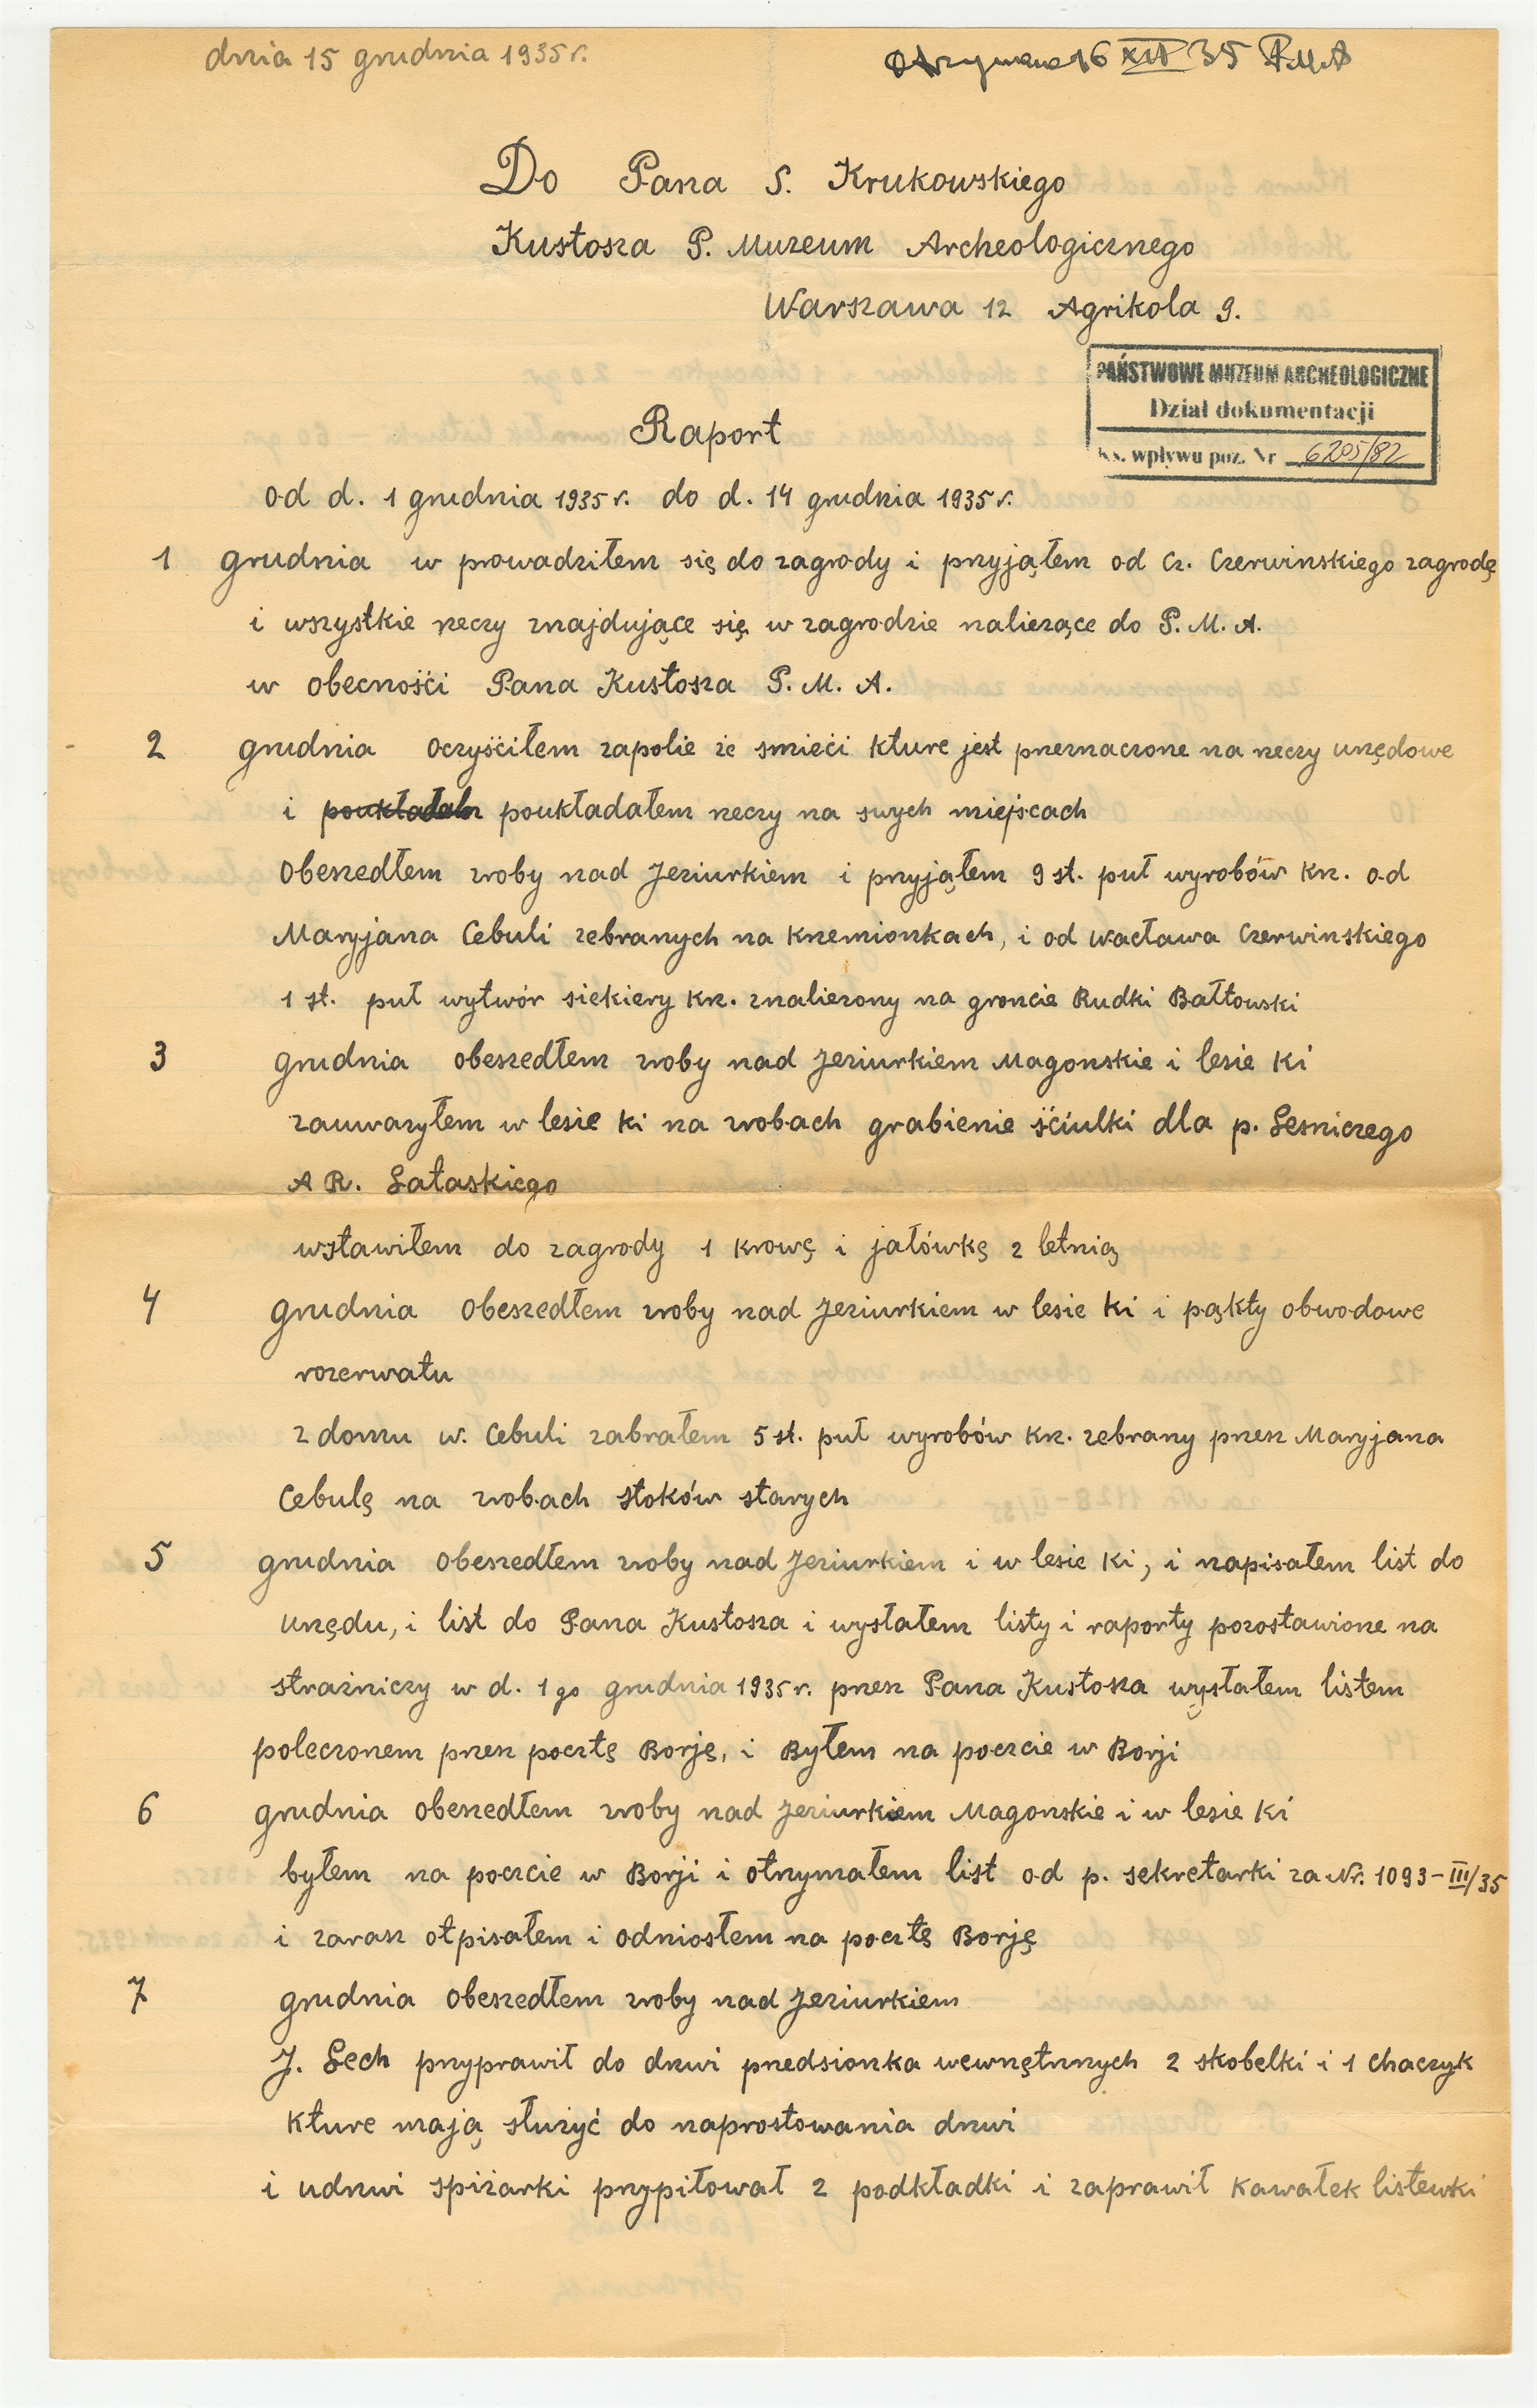 dnia 15 grudnia 1935 r.
Otrzymano 16 XII 35 PMA
Do Pana S. Krukowskiego
Kustosza P. Muzeum Archeologicznego
Warszawa 12 Agrikola 9.
PAŃSTWOWE MUZEUM ARCHEOLOGICZNE
Dział dokumentacji
Ks. wpływu poz. Nr 6205/82
Raport
od d. 1 grudnia 1935 r. do d. 14 grudnia 1935 r.
1 grudnia w prowadziłem się do zagrody i przyjąłem od Cz. Czerwinskiego zagrodę
i wszystkie rzeczy znajdujące się w zagrodzie nalieżące do P. M. A.
w obecnośći Pana Kustosza P. M. A.
2 grudnia oczyśćiłem zapolie źe smieći kture jest przeznaczone na rzeczy urzędowe
i poukładałem rzeczy na swych miejscach
obeszedłem zroby nad Jeziurkiem i przyjąłem 9 st. puł wyrobów krz. od
Maryjana Cebuli zebranych na krzemionkach, i od Wacława Czerwinskiego
1 st. puł wytwór siekiery krz. znalieziony na groncie Rudki Bałtowski
3 grudnia obeszedłem zroby nad Jeziurkiem Magonskie i lesie Ki
zauwarzyłem w lesie Ki na zrobach grabienie śćiulki dla p. Lesniczego
A R. Łataskiego
wstawiłem do zagrody 1 krowę i jałówkę 2 letnią
4 grudnia obeszedłem zroby nad Jeziurkiem w lesie Ki i pąkty obwodowe
rozerwatu
z domu W. Cebuli zabrałem 5 st. puł wyrobów krz. zebrany przez Maryjana
Cebulę na zrobach stoków starych
5 grudnia obeszedłem zroby nad Jeziurkiem i w lesie Ki, i napisałem list do
urzędu, i list do Pana Kustosza i wysłałem listy i raporty pozostawione na
strażniczy w d. 1 go grudnia 1935 r. przez Pana Kustosza wysłałem listem
poleczonem przez pocztę Borję, i Byłem na poczcie w Borji
6 grudnia obeszedłem zroby nad Jeziurkiem Magonskie i w lesie Ki
byłem na poczcie w Borji i otrzymałem list od p. sekretarki za Nr. 1093-III/35
i zarasz otpisałem i odniosłem na pocztę Borję
7 grudnia obeszedłem zroby nad Jeziurkiem
J. Lech przyprawił do drzwi przedsionka wewnętrznych 2 skobelki i 1 chaczyk
kture mają służyć do naprostowania drzwi
i udrzwi spiżarki przypiłował 2 podkładki i zaprawił kawałek listewki